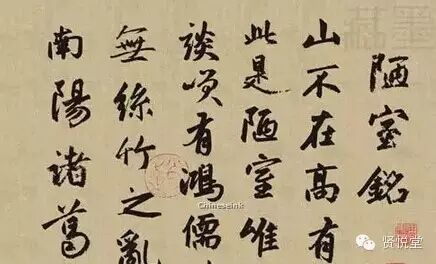 陋室銘
山不在高有
此是陋室唯
談笑有鴻儒
無絲竹之亂
南陽諸葛
Chineseink
贤悦堂